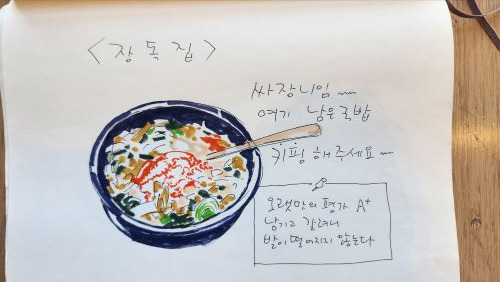 <장독집>
싸장니임~
여기 남은 국밥
키핑 해주세요~
오랫만의 평가 A+
남기고 갈려니
발이 떨어지지 않는다